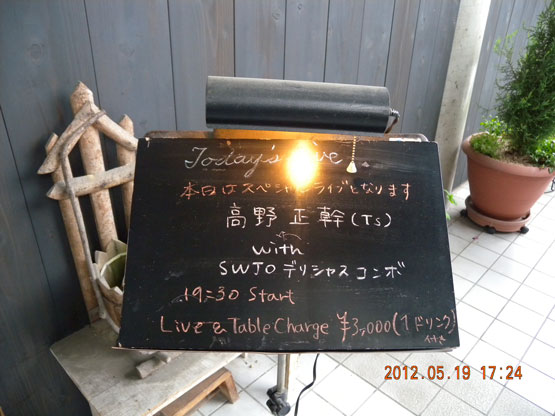 Today's Live
本日はスペシャルライブとなります
高野 正幹(Ts)
with
SWJO デリシャス コンボ
19:30 Start
Live & Table Charge ¥3,000(1ドリンク付き)
2012.05.19 17:24